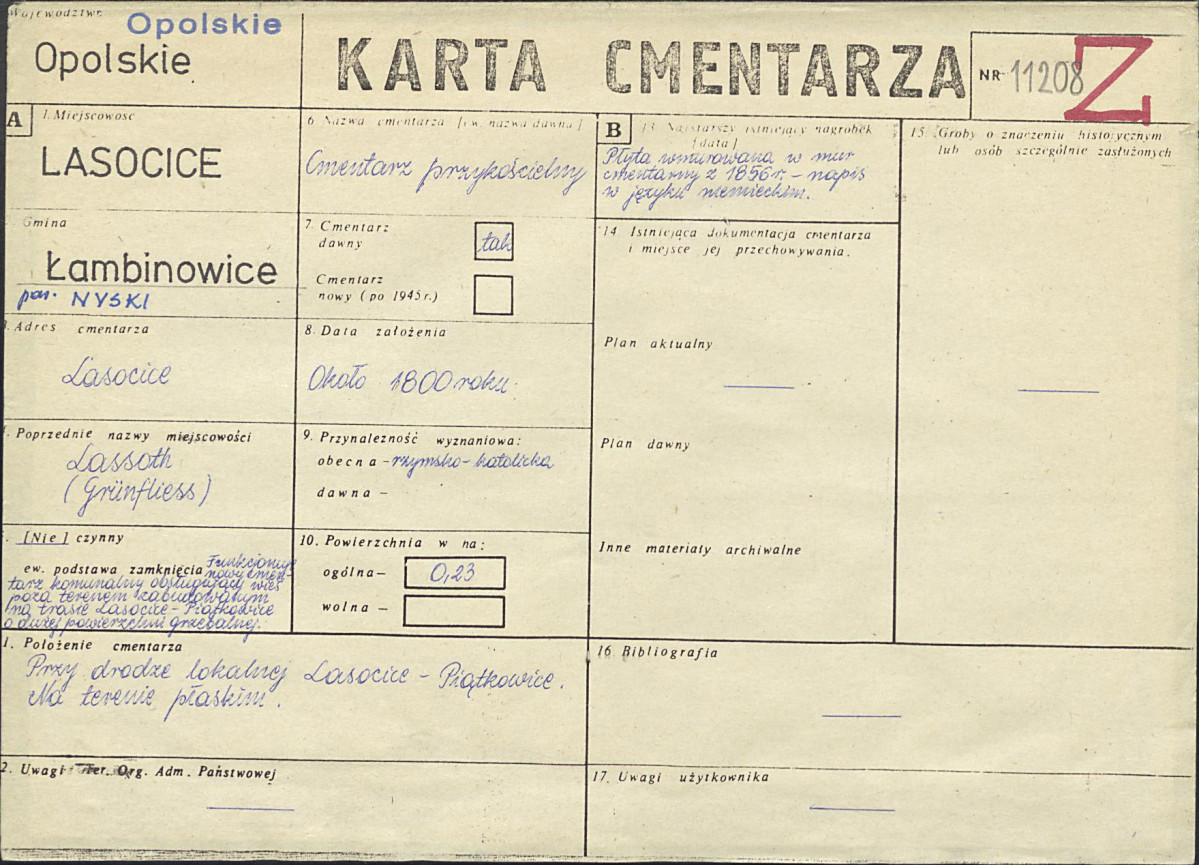 Województwo
Opolskie
Opolskie
KARTA CMENTARZA
NR 11208
Z
A
1. Miejscowość
LASOCICE
Gmina
Łambinowice
pow. NYSKI
3. Adres cmentarza
Lasocice
. Poprzednie nazwy miejscowości
Lassoth
(Grünfliess)
. [Nie] czynny
ew. podstawa zamknięcia Funkcjonuje
nowy cmen-
tarz komunalny obsługujący wieś
poza terenem zabudowanym
na trasie Lasocice - Piątkowice
o dużej powierzchni grzebalnej.
6. Nazwa cmentarza [ew. nazwa dawna]
Cmentarz przykościelny
7. Cmentarz
dawny
tak
Cmentarz
nowy (po 1945 r.)
8. Data założenia
Około 1800 roku.
9. Przynależność wyznaniowa:
obecna - rzymsko-katolicka
dawna -
10. Powierzchnia w ha:
ogólna - 0,23
wolna -
1. Położenie cmentarza
Przy drodze lokalnej Lasocice - Piątkowice.
Na terenie płaskim.
2. Uwagi Ter. Org. Adm. Państwowej
B
13. Najstarszy istniejący nagrobek
[data]
Płyta wmurowana w mur
cmentarny z 1856 r. - napis
w języku niemieckim.
14. Istniejąca dokumentacja cmentarza
i miejsce jej przechowywania.
Plan aktualny
Plan dawny
Inne materiały archiwalne
15. Groby o znaczeniu historycznym
lub osób szczególnie zasłużonych
16 Bibliografia
17. Uwagi użytkownika